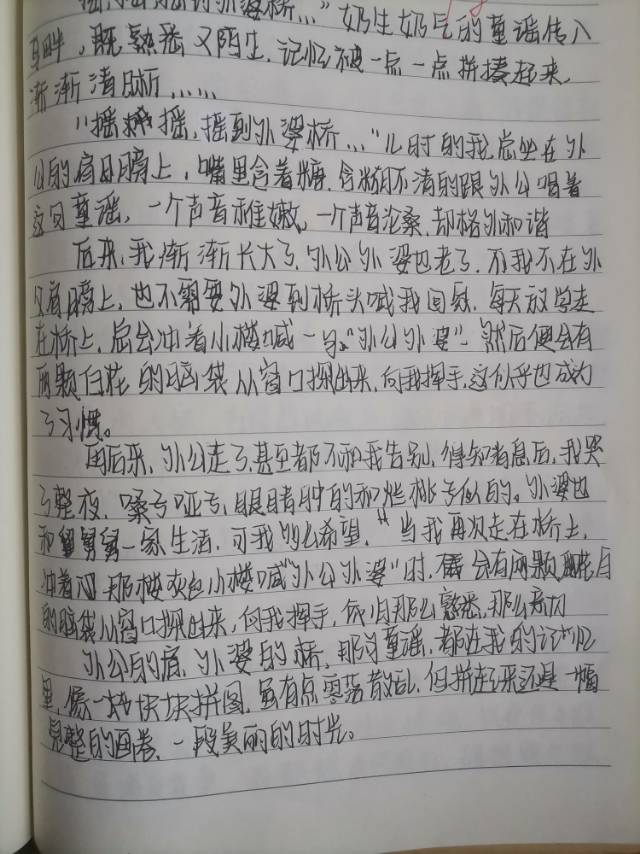 摇，摇到外婆桥…"奶生奶气的童谣传入
耳畔，既熟悉又陌生，记忆被一点一点拼凑起来，
渐渐清晰……
"摇摇摇，摇到外婆桥…"儿时的我总坐在外
公的肩膀上，嘴里含着糖，含糊不清的跟外公唱着
这句童谣，一个声音稚嫩，一个声音沧桑，却格外和谐
后来，我渐渐长大了，外公外婆也老了，不我不在外
公肩膀上，也不需要外婆到桥头喊我回家，每天放学走
在桥上，总会冲着小楼喊一句"外公外婆"，然后便会有
两颗白花的脑袋从窗口探出来，向我挥手，这似乎也成为
了习惯。
再后来，外公走了，甚至都不和我告别，得知消息后，我哭
了整夜，嗓子哑了，眼睛肿的和烂桃子似的。外婆也
和舅舅一家生活，可我多么希望，"当我再次走在桥上，
冲着那楼灰色小楼喊"外公外婆"时，会有两颗花白
的脑袋从窗口探出来，向我挥手，依旧那么熟悉，那么亲切
外公的肩，外婆的桥，那句童谣，都在我的记忆
里，像一块块拼图，虽有点零落散乱，但拼起来还是一幅
完整的画卷，一段美丽的时光。